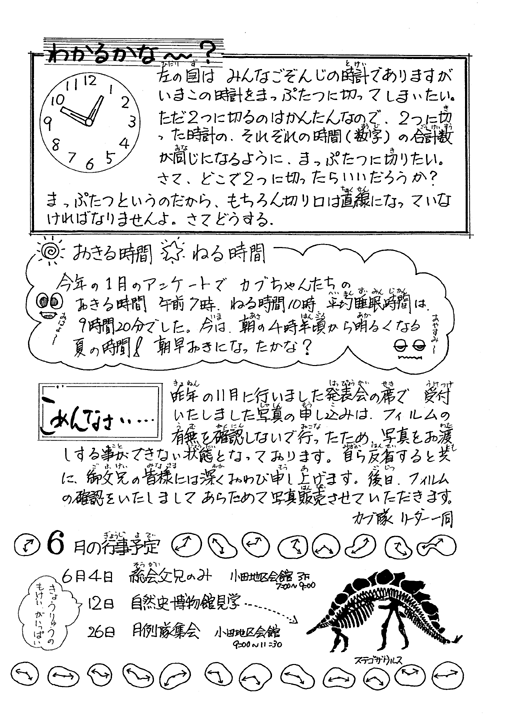 わかるかな〜?
12
1
2
3
4
5
6
7
8
9
10
11
左の図は みんなごぞんじの時計でありますが
いまこの時計をまっぷたつに切ってしまいたい。
ただ2つに切るのはかんたんなので、2つに切
った時計の、それぞれの時間(数字)の合計数
が同じになるように、まっぷたつに切りたい。
さて、どこで2つに切ったらいいだろうか?
まっぷたつというのだから、もちろん切り口は直線になっていな
ければなりませんよ。さてどうする.
おきる時間 ねる時間
今年の1月のアンケートで カブちゃんたちの
おきる時間 午前7時、ねる時間10時 平均睡眠時間は、
9時間20分でした。今は、朝の4時半頃から明るくなる
夏の時間! 朝早おきになったかな?
おやすみ〜
ごめんなさい・・・・
昨年の11月に行いました発表会の席で 受付
いたしました写真の申し込みは、フィルムの
有無を確認しないで行ったため、写真をお渡
しする事ができない状態となっております。自ら反省すると共
に、御父兄の皆様には深くおわび申し上げます。後日、フィルム
の確認をいたしましてあらためて写真販売させていただきます。
カブ隊 リーダー一同
6月の行事予定
6月4日 総会父兄のみ 小田地区会館
7:00〜9:00
12日 自然史博物館見学
26日 月例隊集会 小田地区会館
9:00〜11:30
きょうりゅうの
もけいがいっぱい
ステゴザウルス